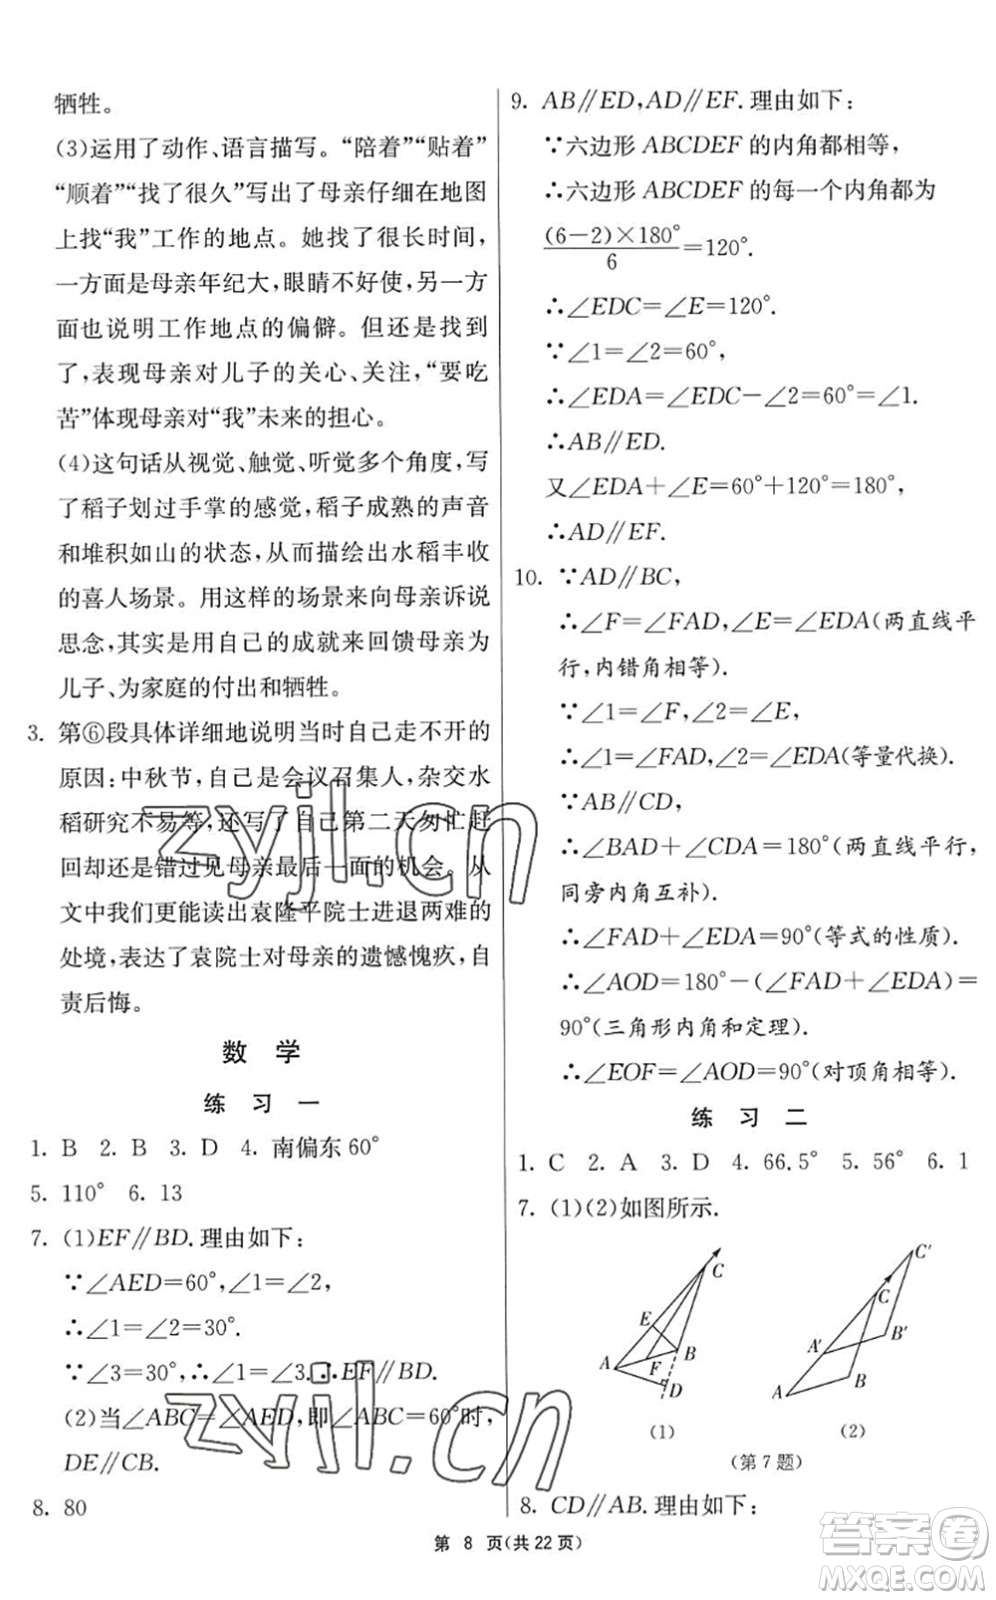 牺牲。
(3)运用了动作、语言描写。“陪着”“贴着”
“顺着”“找了很久”写出了母亲仔细在地图
上找“我”工作的地点。她找了很长时间，
一方面是母亲年纪大，眼睛不好使，另一方
面也说明工作地点的偏僻。但还是找到
了，表现母亲对儿子的关心、关注，“要吃
苦”体现母亲对“我”未来的担心。
(4)这句话从视觉、触觉、听觉多个角度，写
了稻子划过手掌的感觉，稻子成熟的声音
和堆积如山的状态，从而描绘出水稻丰收
的喜人场景。用这样的场景来向母亲诉说
思念，其实是用自己的成就来回馈母亲为
儿子、为家庭的付出和牺牲。
3. 第⑥段具体详细地说明当时自己走不开的
原因：中秋节，自己是会议召集人，杂交水
稻研究不易等，还写了自己第二天匆忙赶
回却还是错过见母亲最后一面的机会。从
文中我们更能读出袁隆平院士进退两难的
处境，表达了袁院士对母亲的遗憾愧疚，自
责后悔。
数 学
练 习 一
1. B 2. B 3. D 4. 南偏东60°
5. 110° 6. 13
7. (1)EF∥BD.理由如下：
∵∠AED=60°,∠1=∠2,
∴∠1=∠2=30°.
∵∠3=30°,∴∠1=∠3.∴EF∥BD.
(2)当∠ABC=∠AED,即∠ABC=60°时,
DE∥CB.
8. 80
9. AB∥ED,AD∥EF.理由如下：
∵六边形ABCDEF的内角都相等，
∴六边形ABCDEF的每一个内角都为
(6-2)×180°/6=120°.
∴∠EDC=∠E=120°.
∵∠1=∠2=60°,
∴∠EDA=∠EDC-∠2=60°=∠1.
∴AB∥ED.
又∠EDA+∠E=60°+120°=180°,
∴AD∥EF.
10. ∵AD∥BC,
∴∠F=∠FAD,∠E=∠EDA(两直线平
行,内错角相等).
∵∠1=∠F,∠2=∠E,
∴∠1=∠FAD,∠2=∠EDA(等量代换).
∵AB∥CD,
∴∠BAD+∠CDA=180°(两直线平行,
同旁内角互补).
∴∠FAD+∠EDA=90°(等式的性质).
∴∠AOD=180°-(∠FAD+∠EDA)=
90°(三角形内角和定理).
∴∠EOF=∠AOD=90°(对顶角相等).
练 习 二
1. C 2. A 3. D 4. 66.5° 5. 56° 6. 1
7. (1)(2)如图所示.
C
E
B
A
F
D
(1)
C′
C
A′
B′
B
A
(2)
(第7题)
8. CD∥AB.理由如下：
第 8 页(共22页)
zyjl.cn
zyjl.cn
答案圈
MXQE.COM